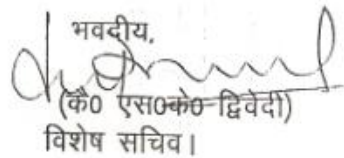 भवदीय,
(कै0 एस0के0 द्विवेदी)
विशेष सचिव।